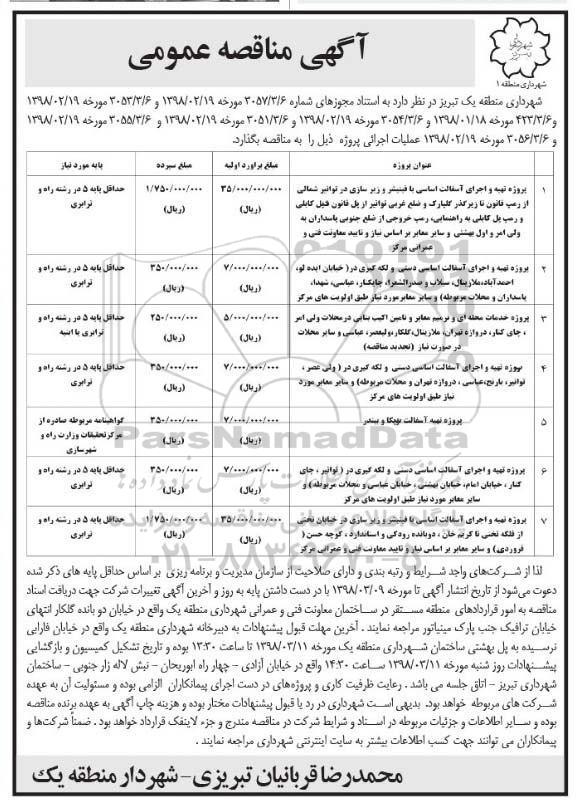 آگهی مناقصه عمومی
شهرداری منطقه ۱
شهرداری منطقه یک تبریز در نظر دارد به استناد مجوزهای شماره ۳۰۵۷/۳/۶ مورخه ۱۳۹۸/۰۲/۱۹ و ۳۰۵۳/۳/۶ مورخه ۱۳۹۸/۰۲/۱۹
و ۴۲۳/۳/۶ مورخه ۱۳۹۸/۰۱/۱۸ و ۳۰۵۴/۳/۶ مورخه ۱۳۹۸/۰۲/۱۹ و ۳۰۵۱/۳/۶ مورخه ۱۳۹۸/۰۲/۱۹ و ۳۰۵۵/۳/۶ مورخه ۱۳۹۸/۰۲/۱۹
و ۳۰۵۶/۳/۶ مورخه ۱۳۹۸/۰۲/۱۹ عملیات اجرائی پروژه ذیل را به مناقصه بگذارد.
عنوان پروژه مبلغ برآورد اولیه مبلغ سپرده پایه مورد نیاز
۱ پروژه تهیه و اجرای آسفالت اساسی با فینیشر و زیر سازی در توانیر شمالی ۳۵/۰۰۰/۰۰۰/۰۰۰ ۱/۷۵۰/۰۰۰/۰۰۰ حداقل پایه ۵ در رشته راه و
از رمپ قانون تا زیرگذر گلپارک و ضلع غربی توانیر از پل قانون قبل کابلی (ریال) (ریال) ترابری
و رمپ پل کابلی به راهنمایی، رمپ خروجی از ضلع جنوبی پاسداران به
ولی امر و اول بهشتی و سایر معابر بر اساس نیاز و تایید معاونت فنی و
عمرانی مرکز
۲ پروژه تهیه و اجرای آسفالت اساسی دستی و لکه گیری در ( خیابان ایده لو، ۷/۰۰۰/۰۰۰/۰۰۰ ۳۵۰/۰۰۰/۰۰۰ حداقل پایه ۵ در رشته راه و
احمدآباد، ملازینال، سیلاب و صدرالشعرا، چایکنار، عباسی، شهدا، (ریال) (ریال) ترابری
پاسداران و محلات مربوطه) و سایر معابر مورد نیاز طبق اولویت های مرکز
۳ پروژه خدمات محله ای و ترمیم معابر و تامین اکیپ بنایی در محلات ولی امر ۵/۰۰۰/۰۰۰/۰۰۰ ۲۵۰/۰۰۰/۰۰۰ حداقل پایه ۵ در رشته راه و
، چای کنار، دروازه تهران، ملازینال، گلکار، ولیعصر، عباسی و سایر محلات (ریال) (ریال) ترابری یا ابنیه
در صورت نیاز (تجدید مناقصه)
۴ پروژه تهیه و اجرای آسفالت اساسی دستی و لکه گیری در ( ولی عصر ، ۷/۰۰۰/۰۰۰/۰۰۰ ۳۵۰/۰۰۰/۰۰۰ حداقل پایه ۵ در رشته راه و
توانیر، بارنج، عباسی ، دروازه تهران و محلات مربوطه) و سایر معابر مورد (ریال) (ریال) ترابری
نیاز طبق اولویت های مرکز
۵ پروژه تهیه آسفالت توپکا و بیندر ۷/۰۰۰/۰۰۰/۰۰۰ ۳۵۰/۰۰۰/۰۰۰ گواهینامه مربوطه صادره از
(ریال) (ریال) مرکز تحقیقات وزارت راه و
شهرسازی
۶ پروژه تهیه و اجرای آسفالت اساسی دستی و لکه گیری در ( توانیر ، چای ۷/۰۰۰/۰۰۰/۰۰۰ ۳۵۰/۰۰۰/۰۰۰ حداقل پایه ۵ در رشته راه و
کنار ، خیابان امام، خیابان بهشتی ، خیابان عباسی و محلات مربوطه) و (ریال) (ریال) ترابری
سایر معابر مورد نیاز طبق اولویت های مرکز
۷ پروژه تهیه و اجرای آسفالت اساسی با فینیشر و زیر سازی در خیابان نختی ۳۵/۰۰۰/۰۰۰/۰۰۰ ۱/۷۵۰/۰۰۰/۰۰۰ حداقل پایه ۵ در رشته راه و
از فلکه نختی تا کریم خان ، دوبانده رودکی و استاندارد ، کوچه حسن ( (ریال) (ریال) ترابری
فروردی) و سایر معابر بر اساس نیاز و تایید معاونت فنی و عمرانی مرکز
لذا از شرکت‌های واجد شرایط و رتبه بندی و دارای صلاحیت از سازمان مدیریت و برنامه ریزی بر اساس حداقل پایه های ذکر شده
دعوت می‌شود از تاریخ انتشار آگهی تا مورخه ۱۳۹۸/۰۳/۰۹ با در دست داشتن پایه به روز و آخرین آگهی تغییرات شرکت جهت دریافت اسناد
مناقصه به امور قراردادهای منطقه مستقر در ساختمان معاونت فنی و عمرانی شهرداری منطقه یک واقع در خیابان دو بانده گلکار انتهای
خیابان ترافیک جنب پارک مینیاتور مراجعه نمایند . آخرین مهلت قبول پیشنهادات به دبیرخانه شهرداری منطقه یک واقع در خیابان فارابی
نرسیده به پل بهشتی ساختمان شهرداری منطقه یک مورخه ۱۳۹۸/۰۳/۱۱ تا ساعت ۱۳:۳۰ بوده و تاریخ تشکیل کمیسیون و بازگشایی
پیشنهادات روز شنبه مورخه ۱۳۹۸/۰۳/۱۱ ساعت ۱۴:۳۰ واقع در خیابان آزادی - چهار راه ابوریحان - نبش لاله زار جنوبی - ساختمان
شهرداری تبریز - اتاق جلسه می باشد . رعایت ظرفیت کاری و پروژه‌های در دست اجرای پیمانکاران الزامی بوده و مسئولیت آن به عهده
شرکت های مربوطه خواهد بود. بدیهی است شهرداری در رد یا قبول پیشنهادات مختار بوده و هزینه چاپ آگهی به عهده برنده مناقصه
بوده و سایر اطلاعات و جزئیات مربوطه در اسناد و شرایط شرکت در مناقصه مندرج و جزء لاینفک قرارداد خواهد بود . ضمناً شرکت‌ها و
پیمانکاران می توانند جهت کسب اطلاعات بیشتر به سایت اینترنتی شهرداری مراجعه نمایند .
محمدرضا قربانیان تبریزی - شهردار منطقه یک
ParsNamadData
۰۲۱-۸۸۳۴۹۶۷۰-۵